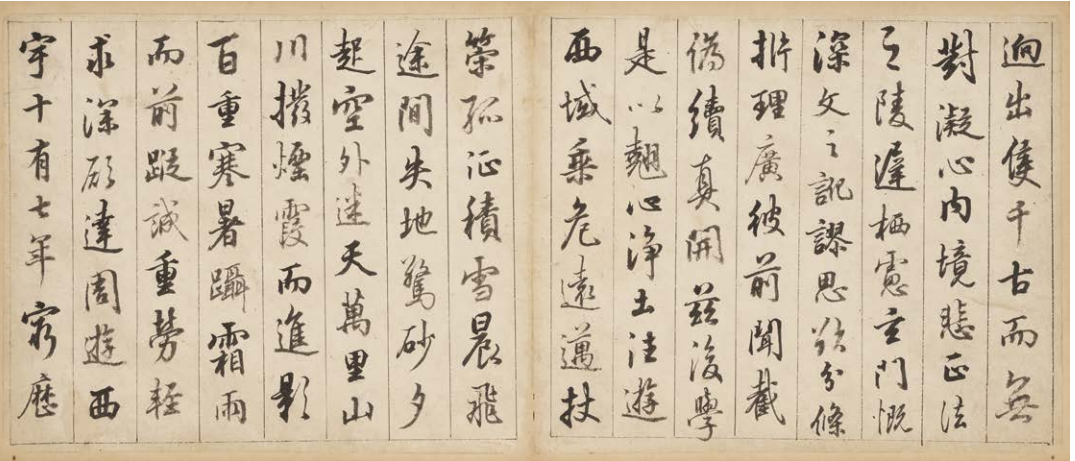 迥出隻千古而無
對凝心內境悲正法
之陵遲栖慮玄門慨
深文之訛謬思欲分條
析理廣彼前聞截
偽續真開茲後學
是以翹心淨土往遊
西域乘危遠邁杖
策孤征積雪晨飛
途間失地驚砂夕
起空外迷天萬里山
川撥煙霞而進影
百重寒暑躡霜雨
而前蹤誠重勞輕
求深願達周遊西
宇十有七年窮歷